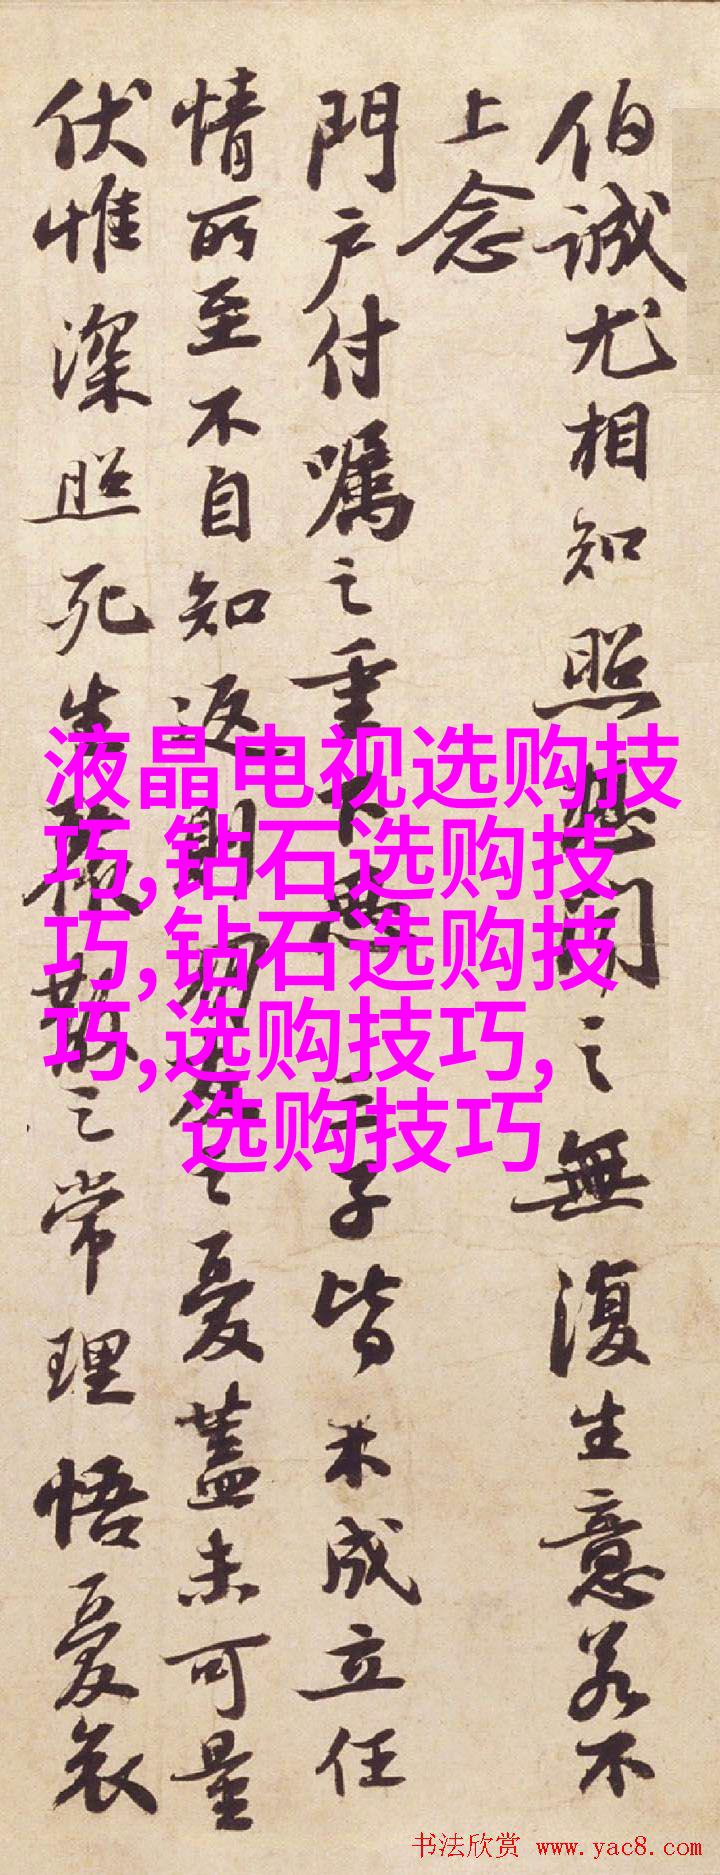 伯誠尤相知照想聞之無復生意若不
上念
門户付囑之重下思三子皆未成立任
情所至不自知返則朋友之憂蓋未可量
伏惟深照死生聚散之常理悟憂哀
液晶电视选购技
巧,钻石选购技
巧,钻石选购技
巧,选购技巧,
选购技巧
书法欣赏 www.yac8.com